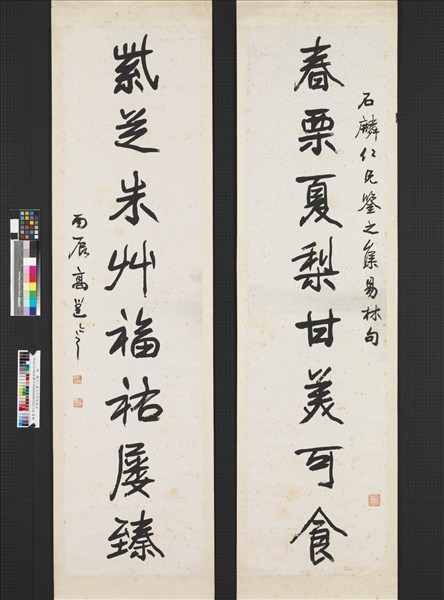 石麟仁兄鑒之集易林句
春栗夏梨甘美可食
紫芝朱艸福祐屢臻
丙辰高邕